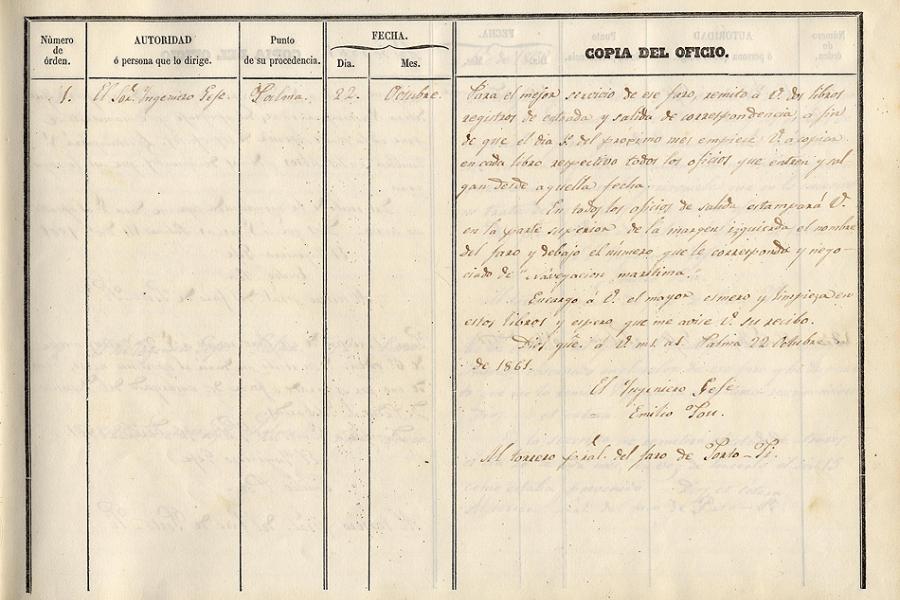 Nùmero
de
órden.
AUTORIDAD
ó persona que lo dirige.
Punto
de su procedencia.
FECHA.
Dia.
Mes.
COPIA DEL OFICIO.
1.
El Sor. Ingeniero Gefe.
Palma.
22.
Octubre.
Para el mejor servicio de ese faro, remito á V. dos libros
registros de entrada y salida de correspondencia, á fin
de que el dia 1º. del procsimo mes empiece V. á copiar
en cada libro respectivo todos los oficios que entren y sal
gan desde aquella fecha.
En todos los oficios de salida estampará V.
en la parte superior de la margen izquierda el nombre
del faro y debajo el número que le corresponda y nego-
ciado de "Navegacion maritima."
Encargo á V. el mayor esmero y limpieza en
estos libros y espero que me avise V. su recibo.
Dios gue. á V. ms. as. Palma 22 Octubre
de 1861.
El Ingeniero Gefe
Emilio Pou.
Al torrero pral. del faro de Porto-Pi.